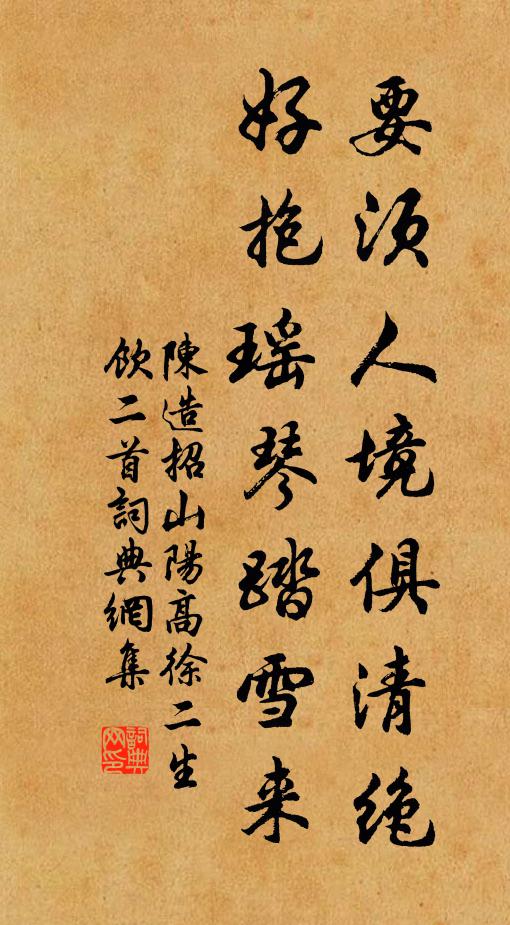 要须人境俱清绝
好抱瑶琴踏雪来
陳造招山陽高徐二生
飲二首詞典網集
詞典网印